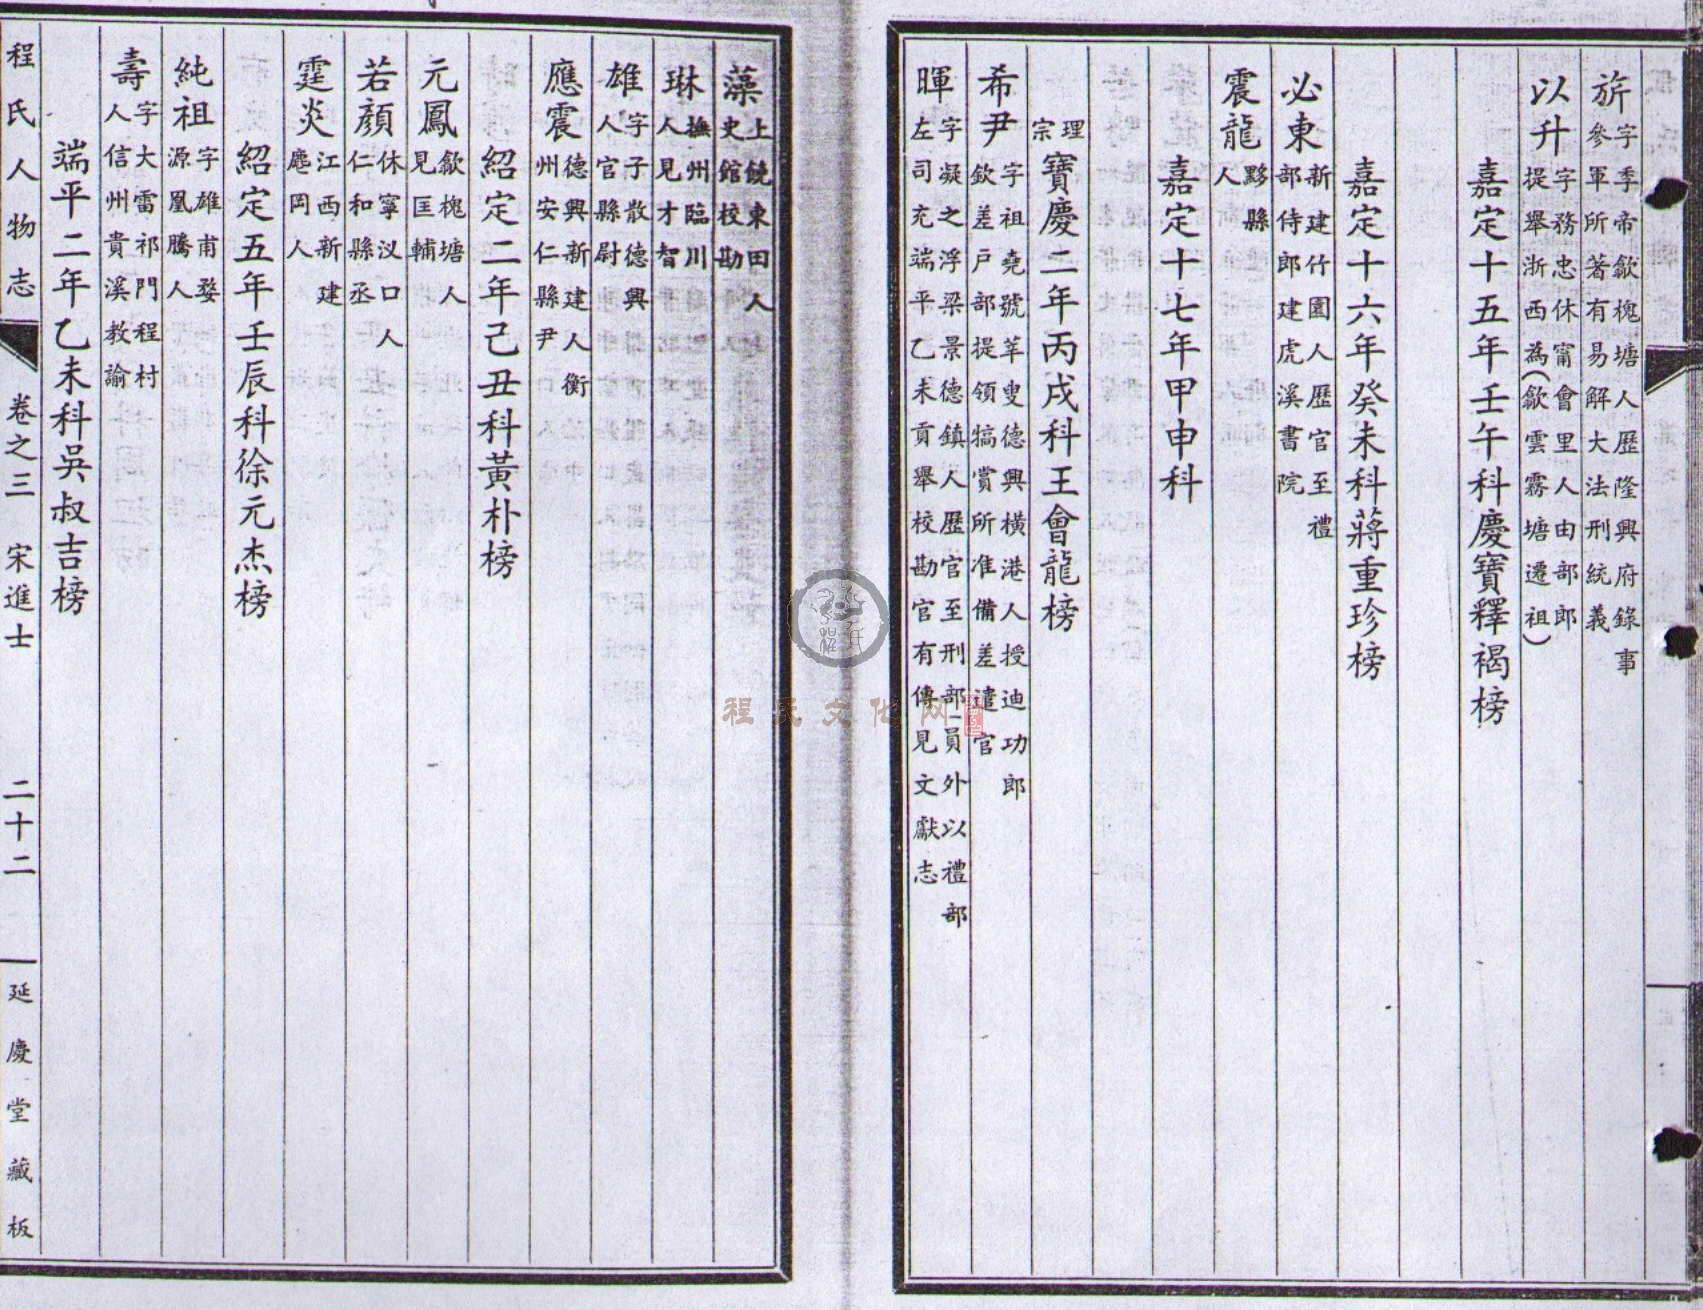 旂 字季帝歙槐塘人歷隆興府錄事
參軍所著有易解大法刑統義
以升 字務忠休甯會里人由部郎
提舉浙西為(歙雲霧塘遷祖)
嘉定十五年壬午科慶寶釋褐榜
嘉定十六年癸未科蔣重珍榜
必東 新建竹園人歷官至禮
部侍郎建虎溪書院
震龍 黟縣
人
嘉定十七年甲申科
理
宗
寶慶二年丙戌科王會龍榜
希尹 字祖堯號莘叟德興橫港人授迪功郎
欽差戶部提領犒賞所准備差遣官
暉 字凝之浮梁景德鎮人歷官至刑部員外以禮部
左司充端平乙未貢舉校勘官有傳見文獻志
藻 上饒東田人
史館校勘
琳 撫州臨川
人見才智
雄 字子散德興
人官縣尉
應震 德興新建人衡
州安仁縣尹
紹定二年己丑科黃朴榜
元鳳 歙槐塘人
見匡輔
若顏 休寧汊口人
仁和縣丞
霆炎 江西新建
塵岡人
紹定五年壬辰科徐元杰榜
純祖 字雄甫婺
源凰騰人
壽 字大雷祁門程村
人信州貴溪教諭
端平二年乙未科吳叔吉榜
程氏人物志 卷之三 宋進士 二十二 延慶堂藏板
程氏文化网